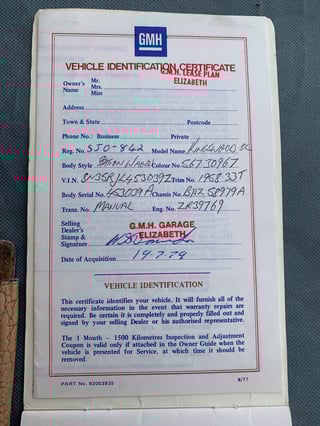 GMH
VEHICLE IDENTIFICATION CERTIFICATE
G.M.H. LEASE PLAN
ELIZABETH
Owner's Name Mr. Mrs. Miss
Address
Town & State Postcode
Phone No.: Business Private
Reg. No. SSO-842 Model Name KINGSWOOD SL
Body Style STATION WAGON Colour No. 567-30967
V.I.N. 8N35RJK453039Z Trim No. 1958 33T
Body Serial No. 453039A Chassis No.
Trans. No. MANUAL Eng. No. ZR39769
Selling Dealer's Stamp & Signature
G.M.H. GARAGE
ELIZABETH
Date of Acquisition 19.7.79
VEHICLE IDENTIFICATION
This certificate identifies your vehicle. It will furnish all of the
necessary information in the event that warranty repairs are
required. Be certain it is completely and properly filled out and
signed by your selling Dealer or his authorised representative.
The 1 Month – 1500 Kilometres Inspection and Adjustment
Coupon is valid only if attached in the Owner Guide when the
vehicle is presented for Service, at which time it should be
removed.
PART No. 92003935 8/77